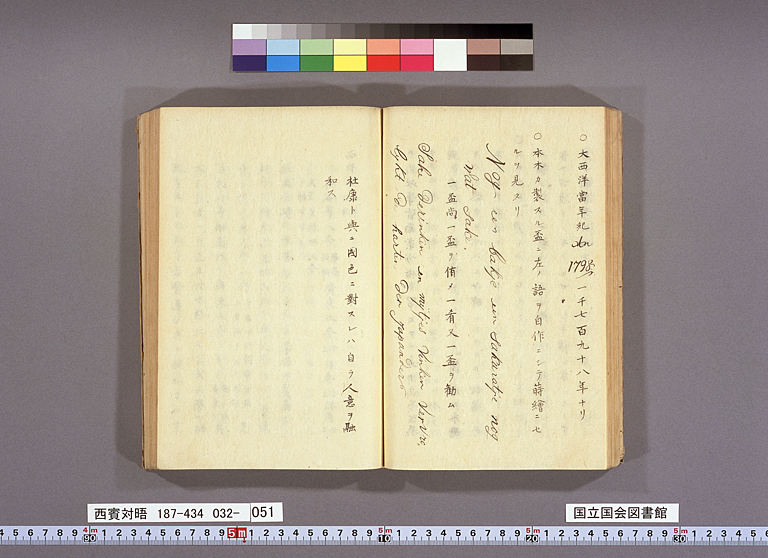 〇大西洋當年紀
1798 一千七百九十八年ナリ
〇本木カ製スル盃ニ左ノ語ヲ自作ニシテ蒔繪ニセ
ルヲ見タリ
Nog een bakje een sakaratje nog
wat sake.
一盃尚一盃ヲ侑メ一肴又一盃ヲ勧ム
Sake drinken en mijtjes vinken
lykt harten der Japanders
杜康ト與ニ國色ニ對スレハ自ラ人意ヲ融
和ス
西賓対晤 187-434 032-051
国立国会図書館